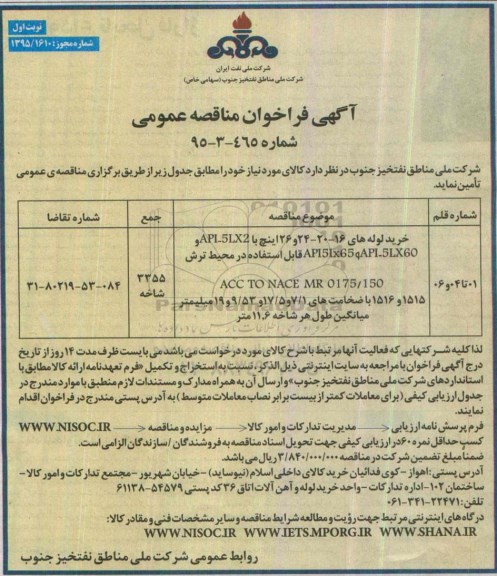 نوبت اول
شماره مجوز: ۱۳۹۵/۱۶۱۰
شرکت ملی نفت ایران
شرکت ملی مناطق نفتخیز جنوب (سهامی خاص)
آگهی فراخوان مناقصه عمومی
شماره ۴۶۵-۳-۹۵
شرکت ملی مناطق نفتخیز جنوب در نظر دارد کالای مورد نیاز خود را مطابق جدول زیر از طریق برگزاری مناقصه ی عمومی
تأمین نماید.
شماره قلم
موضوع مناقصه
جمع
شماره تقاضا
۰۱تا۰۴و۰۶
خرید لوله های ۱۶-۲۰-۲۴و۲۶اینچ با API-5LX2و
API-5LX60وAPI5lx65قابل استفاده در محیط ترش
ACC TO NACE MR 0175/150
۱۵۱۵و ۱۵۱۶ با ضخامت های ۷/۱و۱۷/۵و۹/۵۳و ۱۹ میلیمتر
میانگین طول هر شاخه ۱۱.۶ متر
۳۳۵۵
شاخه
۳۱-۸۰۲۱۹-۵۳-۰۸۴
لذا کلیه شرکتهایی که فعالیت آنها مرتبط با شرح کالای مورد درخواست می باشد می بایست ظرف مدت ۱۴ روز از تاریخ
درج آگهی فراخوان با مراجعه به سایت اینترنتی ذیل الذکر، نسبت به استخراج و تکمیل «فرم تعهدنامه ارائه کالا مطابق با
استانداردهای شرکت ملی مناطق نفتخیز جنوب» و ارسال آن به همراه مدارک و مستندات لازم منطبق با موارد مندرج در
جدول ارزیابی کیفی (برای معاملات کمتر از بیست برابر نصاب معاملات متوسط) به آدرس پستی مندرج در فراخوان اقدام
نمایند.
فرم پرسش نامه ارزیابی مدیریت تدارکات و امور کالا مزایده و مناقصه WWW.NISOC.IR
کسب حداقل نمره ۶۰ در ارزیابی کیفی جهت تحویل اسناد مناقصه به فروشندگان / سازندگان الزامی است.
ضمناً مبلغ تضمین شرکت در مناقصه ۳/۸۴۰/۰۰۰/۰۰۰ ریال می باشد.
آدرس پستی: اهواز - کوی فدائیان خرید کالای داخلی اسلام (نیوساید) - خیابان شهریور - مجتمع تدارکات و امور کالا -
ساختمان ۱۰۲- اداره تدارکات - واحد خرید لوله و آهن آلات اتاق ۳۶ کد پستی ۵۴۵۷۹-۶۱۱۳۸
تلفن: ۲۲۴۷۱-۳۴۱-۰۶۱
درگاه های اینترنتی مرتبط جهت رؤیت و مطالعه شرایط مناقصه و سایر مشخصات فنی و مقادر کالا:
WWW.NISOC.IR WWW.IETS.MPORG.IR WWW.SHANA.IR
روابط عمومی شرکت ملی مناطق نفتخیز جنوب